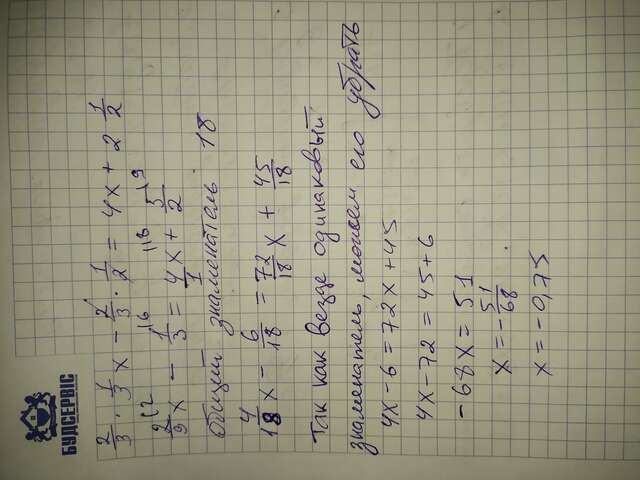 БУДСЕРВІС
2/3 · 1/3 x - 2/3 · 1/2 = 4x + 2 1/2
2/9 x - 1/3 = 4x/1 + 5/2
Общий знаменатель 18
4/18 x - 6/18 = 72/18 x + 45/18
Так как везде одинаковый
знаменатель, можем его убрать
4x - 6 = 72x + 45
4x - 72 = 45 + 6
-68x = 51
x = - 51/68
x = -0,75